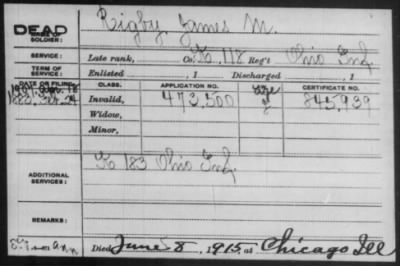 DEAD Rigby, James M.
NAME OF SOLDIER:
SERVICE: Late rank, Co. K, 118 Reg't Ohio Inf.
TERM OF SERVICE: Enlisted , 1 Discharged , 1
DATE OF FILING. CLASS. APPLICATION NO. CERTIFICATE NO.
Invalid, 473,500 845,939
Widow,
Minor,
K 183 Ohio Inf.
ADDITIONAL SERVICES:
REMARKS:
Died June 8, 1915, at Chicago Ill